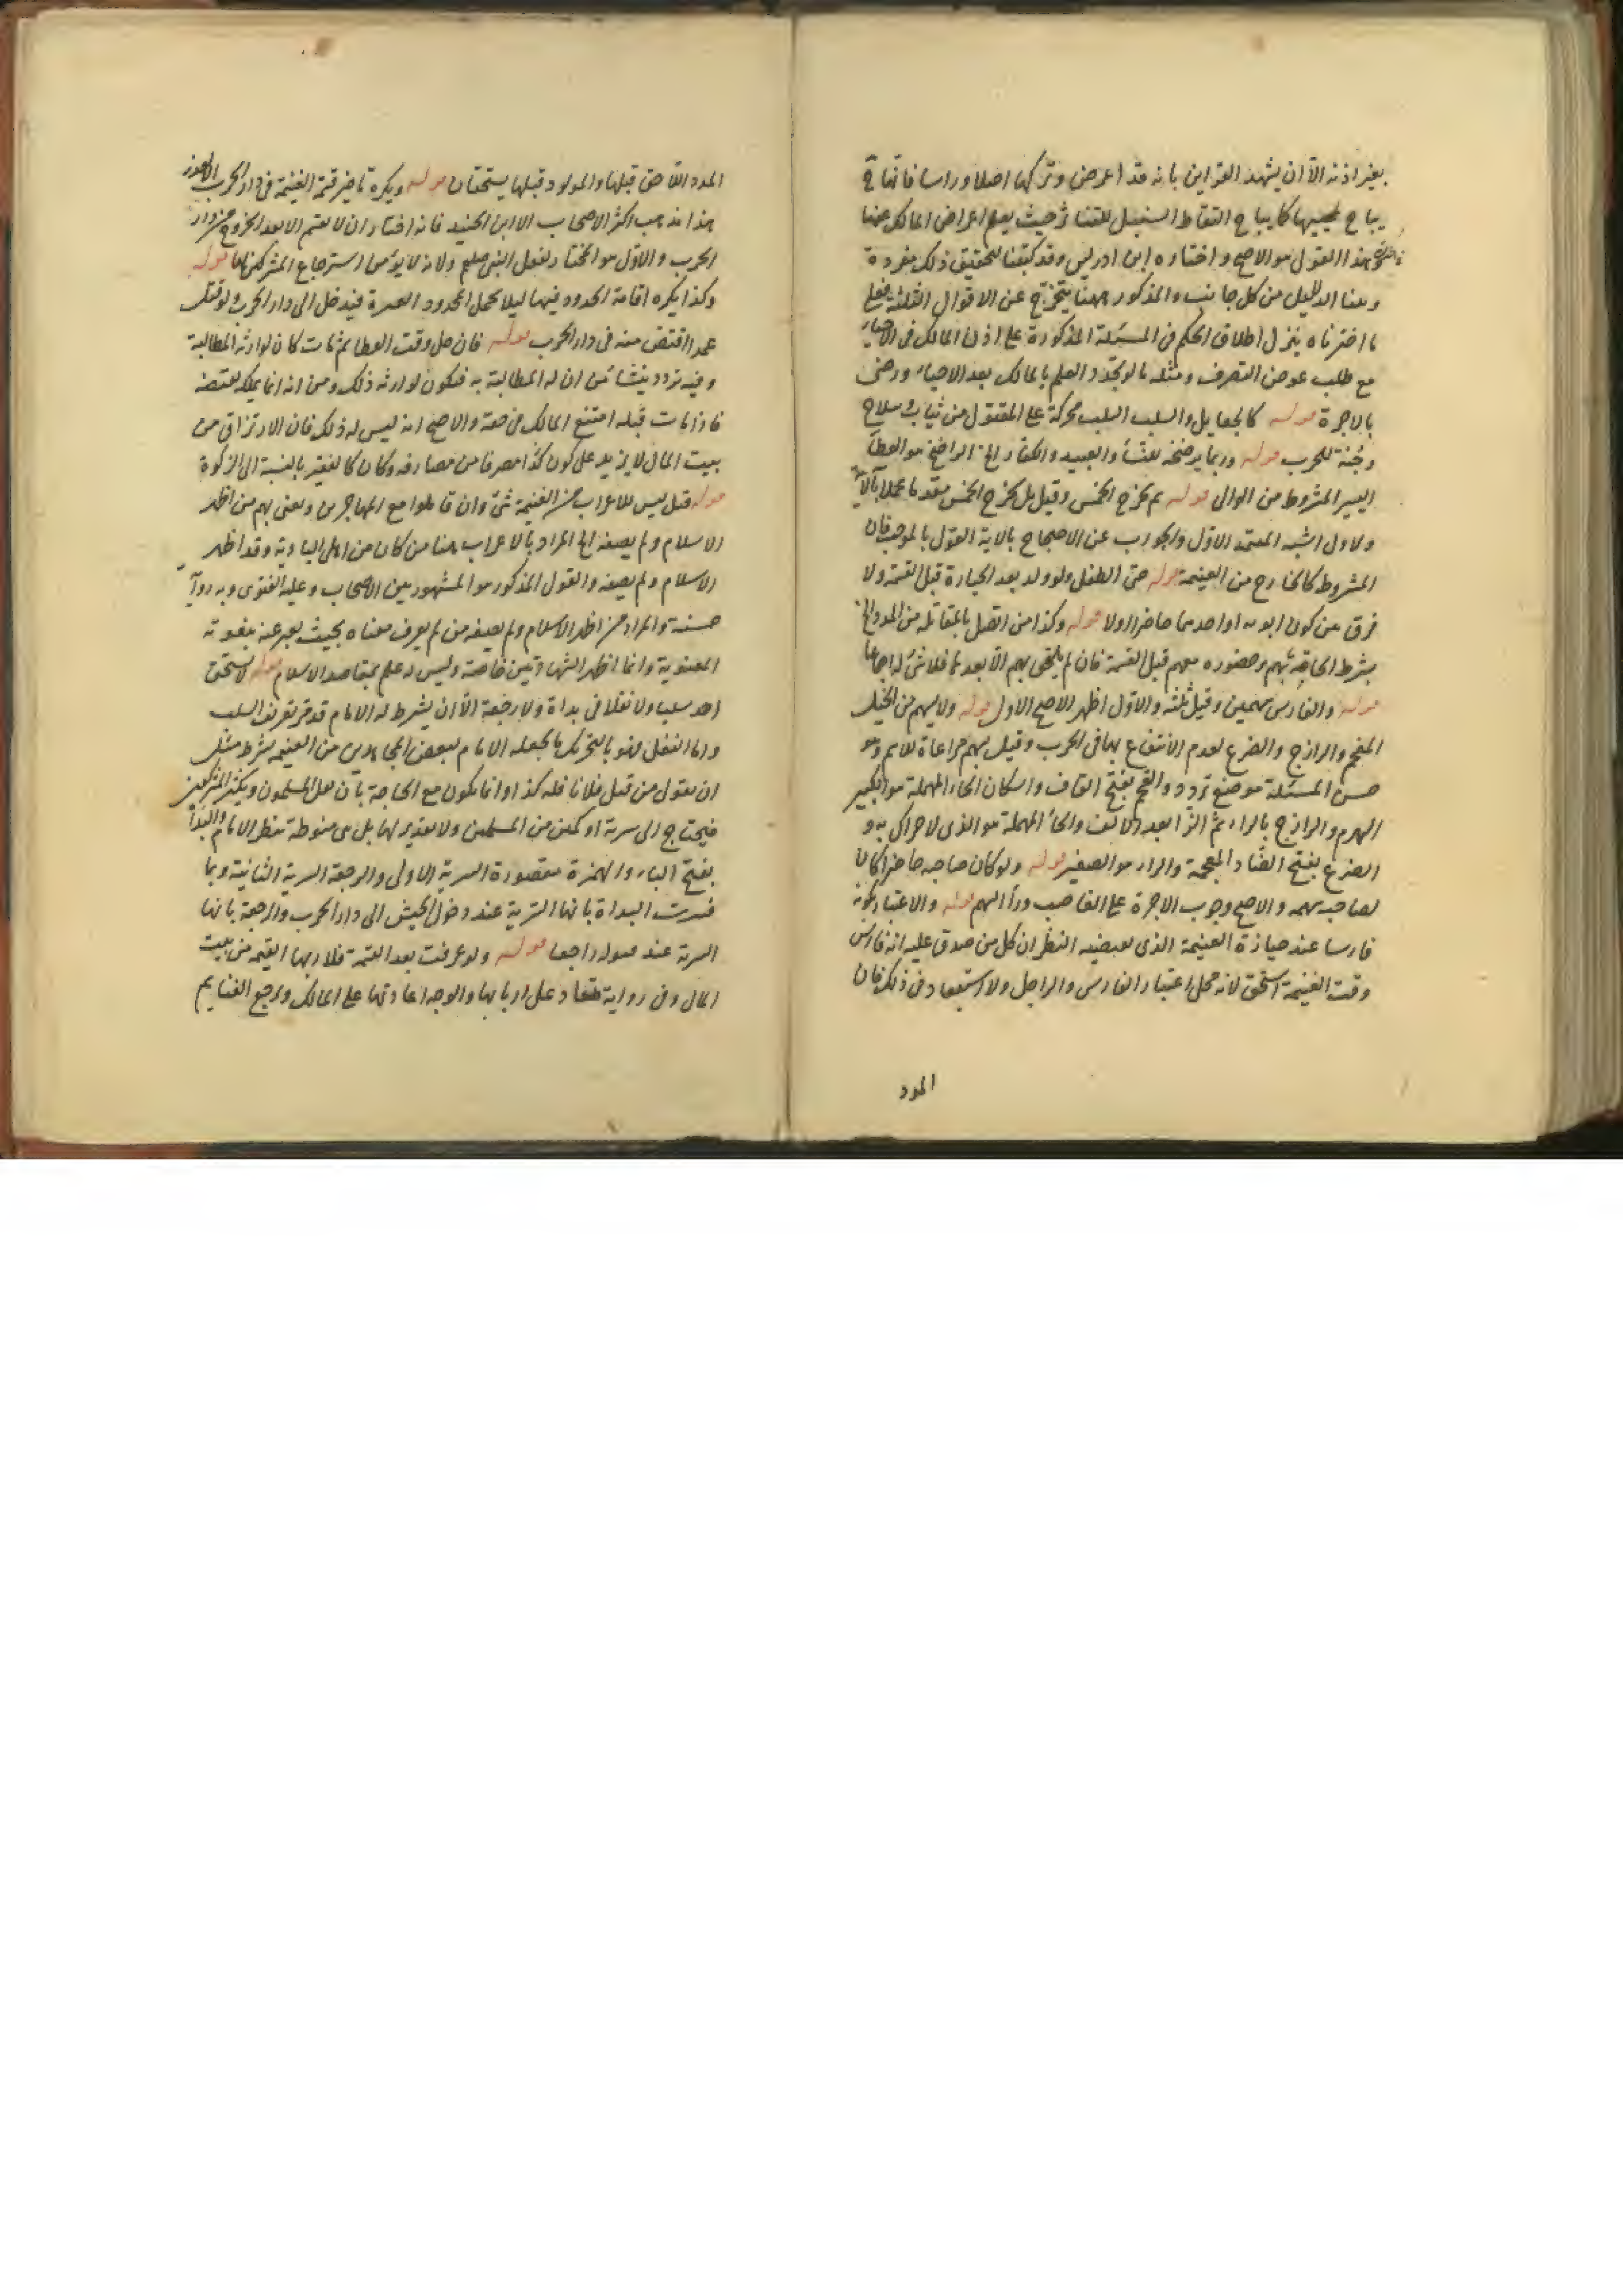 بغير اذنه الا ان يشهد القراين بانه قد اعرض وتركها اصلا وراسا فانها ح
يباح لمحييها كما يباح التقاط السنبل المتناثر حيث يعلم اعراض المالك عنها
هذا القول هو الاصح و اختاره ابن ادريس وقد كتبنا لتحقيق ذلك مفردة
وبينا الدليل من كل جانب والمذكور ههنا يتخرج عن الاقوال الثلثة فعلى
ما اخترناه ينزل اطلاق الحكم في المسئلة المذكورة على اذن المالك في الاحياء
مع طلب عوض التصرف ومثله ما لو تجدد العلم بالمالك بعد الاحياء ورضى
بالاجرة قوله كالجعايل والسلب السلب محركة على المقتول من ثياب وسلاح
وجُنة للحرب قوله وربما يرضخه للنساء والعبيد والكفار الخ الراضخ هو العطاء
اليسير المشروط من الوالى قوله ثم يخرج الخمس وقيل بل يخرج الخمس مقدما عملا بالآية
والاول اشبه المعتمد الاول والجواب عن الاحتجاج بالاية القول بالموجب فان
المشروط كالخارج من الغنيمة قوله حتى الطفل ولو ولد بعد الحيازة قبل القسمة ولا
فرق بين كون ابويه او احدهما حاضرا اولا قوله وكذا من اتصل بالمقاتلة من المدد الخ
بشرط الحاقه بهم وحضوره معهم قبل القسمة فان لم يلحق بهم الا بعدها فلا شئ له اجماعا
قوله والفارس سهمين وقيل ثلثة والاول اظهر الاصح الاول قوله ولا يسهم من الخيل
القحم والرازح والضرع لعدم الانتفاع بها في الحرب وقيل يسهم مراعاة للاسم وهو
حسن المسئلة موضع تردد والقحم بفتح القاف واسكان الحاء المهملة هو الكبير
الهرم والرازح بالراء ثم الزا بعد الالف والحاء المهملة هو الذى لا حراك به و
الضرع بفتح الضاد المعجمة والراء هو الصغير قوله ولو كان صاحبه حاضرا كان
لصاحبه سهمه والاصح وجوب الاجرة على الغاصب وراء السهم قوله والاعتبار بكونه
فارسا عند حيازة الغنيمة الذى يقتضيه النظر ان كل من صدق عليه انه فارس
وقت الغنيمة استحق لانه محل اعتبار الفارس والراجل ولا استبعاد في ذلك فان
المدد
المدد اللاحق قبلها والمولود قبلها يستحقان قوله ويكره تاخير قسمة الغنيمة في دار الحرب الا لعذر
هذا مذهب اكثر الاصحاب الا ابن الجنيد فانه اختار ان لا يقسم الا بعد الخروج من دار
الحرب والاول هو المختار لفعل النبي صلعم ولانه لا يؤمن استرجاع المشركين لها قوله
وكذا يكره اقامة الحدود فيها ليلا يحمل المحدود الغيرة فيدخل الى دار الحرب ولو قتل
عمدا اقتص منه في دار الحرب قوله فان حل وقت العطا ثم مات كان لوارثه المطالبة
وفيه تردد ينشا من ان له المطالبة به فيكون لوارثه ذلك ومن انه انما يملكه بقبضه
فاذا مات قبله امتنع المالك في حقه والاصح انه ليس له ذلك فان الارتزاق من
بيت المال لا يزيد على كون كذا مصرفا من مصارفه وكان كالفقير بالنسبة الى الزكوة
قوله قيل ليس للاعراب من الغنيمة شئ وان قاتلوا مع المهاجرين ونعنى بهم من اظهر
الاسلام ولم يصفه الخ المراد بالاعراب هنا من كان من اهل البادية وقد اظهر
الاسلام ولم يصفه والقول المذكور هو المشهور بين الاصحاب وعليه الفتوى وبه رواية
حسنة والمراد من اظهر الاسلام ولم يصفه من لم يعرف معناه بحيث يعبر عنه بنعوته
المعنوية وانما اظهر الشهادتين خاصة وليس له علم بمقاصد الاسلام قوله لا يستحق
احد سلبا ولا نفلا في بداة ولا رجعة الا ان يشرط له الامام قد مر تعريف السلب
واما النفل فهو بالتحريك ما يجعله الامام لبعض المجاهدين من الغنيمة بشرط مثل
ان يقول من قتل فلانا فله كذا وانما يكون مع الحاجة بان يقل المسلمون ويكثر المشركين
فيحتاج الى سرية او كمين من المسلمين ولا تقدير لها بل هى منوطة بنظر الامام والبداة
بفتح الباء والهمزة مقصورة السرية الاولى والرجعة السرية الثانية وربما
فسرت البداة بانها السرية عند دخول الجيش الى دار الحرب والرجعة بانها
السرية عند قفوله راجعا قوله ولو عرفت بعد القسمة فلاربابها القيمة من بيت
المال وفي رواية تعاد على اربابها والوجه اعادتها على المالك ويرجع الغنايم